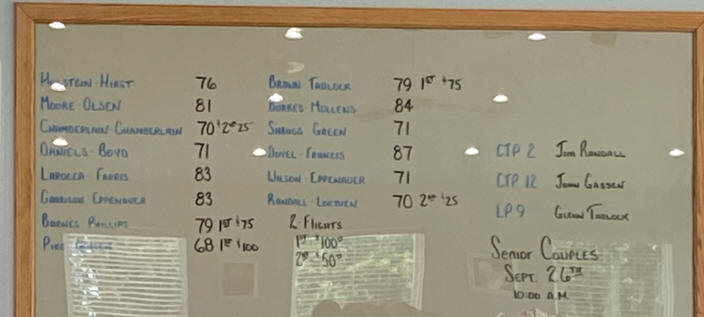 Holstein-Hirst 76
Moore-Olsen 81
Chamberlain-Chamberlain 70 2nd 25
Daniels-Boyd 71
Larocca-Farris 83
Garrison Eppenauer 83
Barnes Phillips 79 1st $75
68 1st $100
Brown-Tablock 79 1st $75
Burkes-Mullens 84
Green 71
Dovel-Francis 87
Wilson-Eppenauer 71
Randall- 70 2nd $25
2 Flights
1st $100
2nd $50
CTP 2 Jim Randall
CTP 12 John Gassen
LP 9 Glenn Tablock
Senior Couples
Sept. 26th
10:00 A.M.